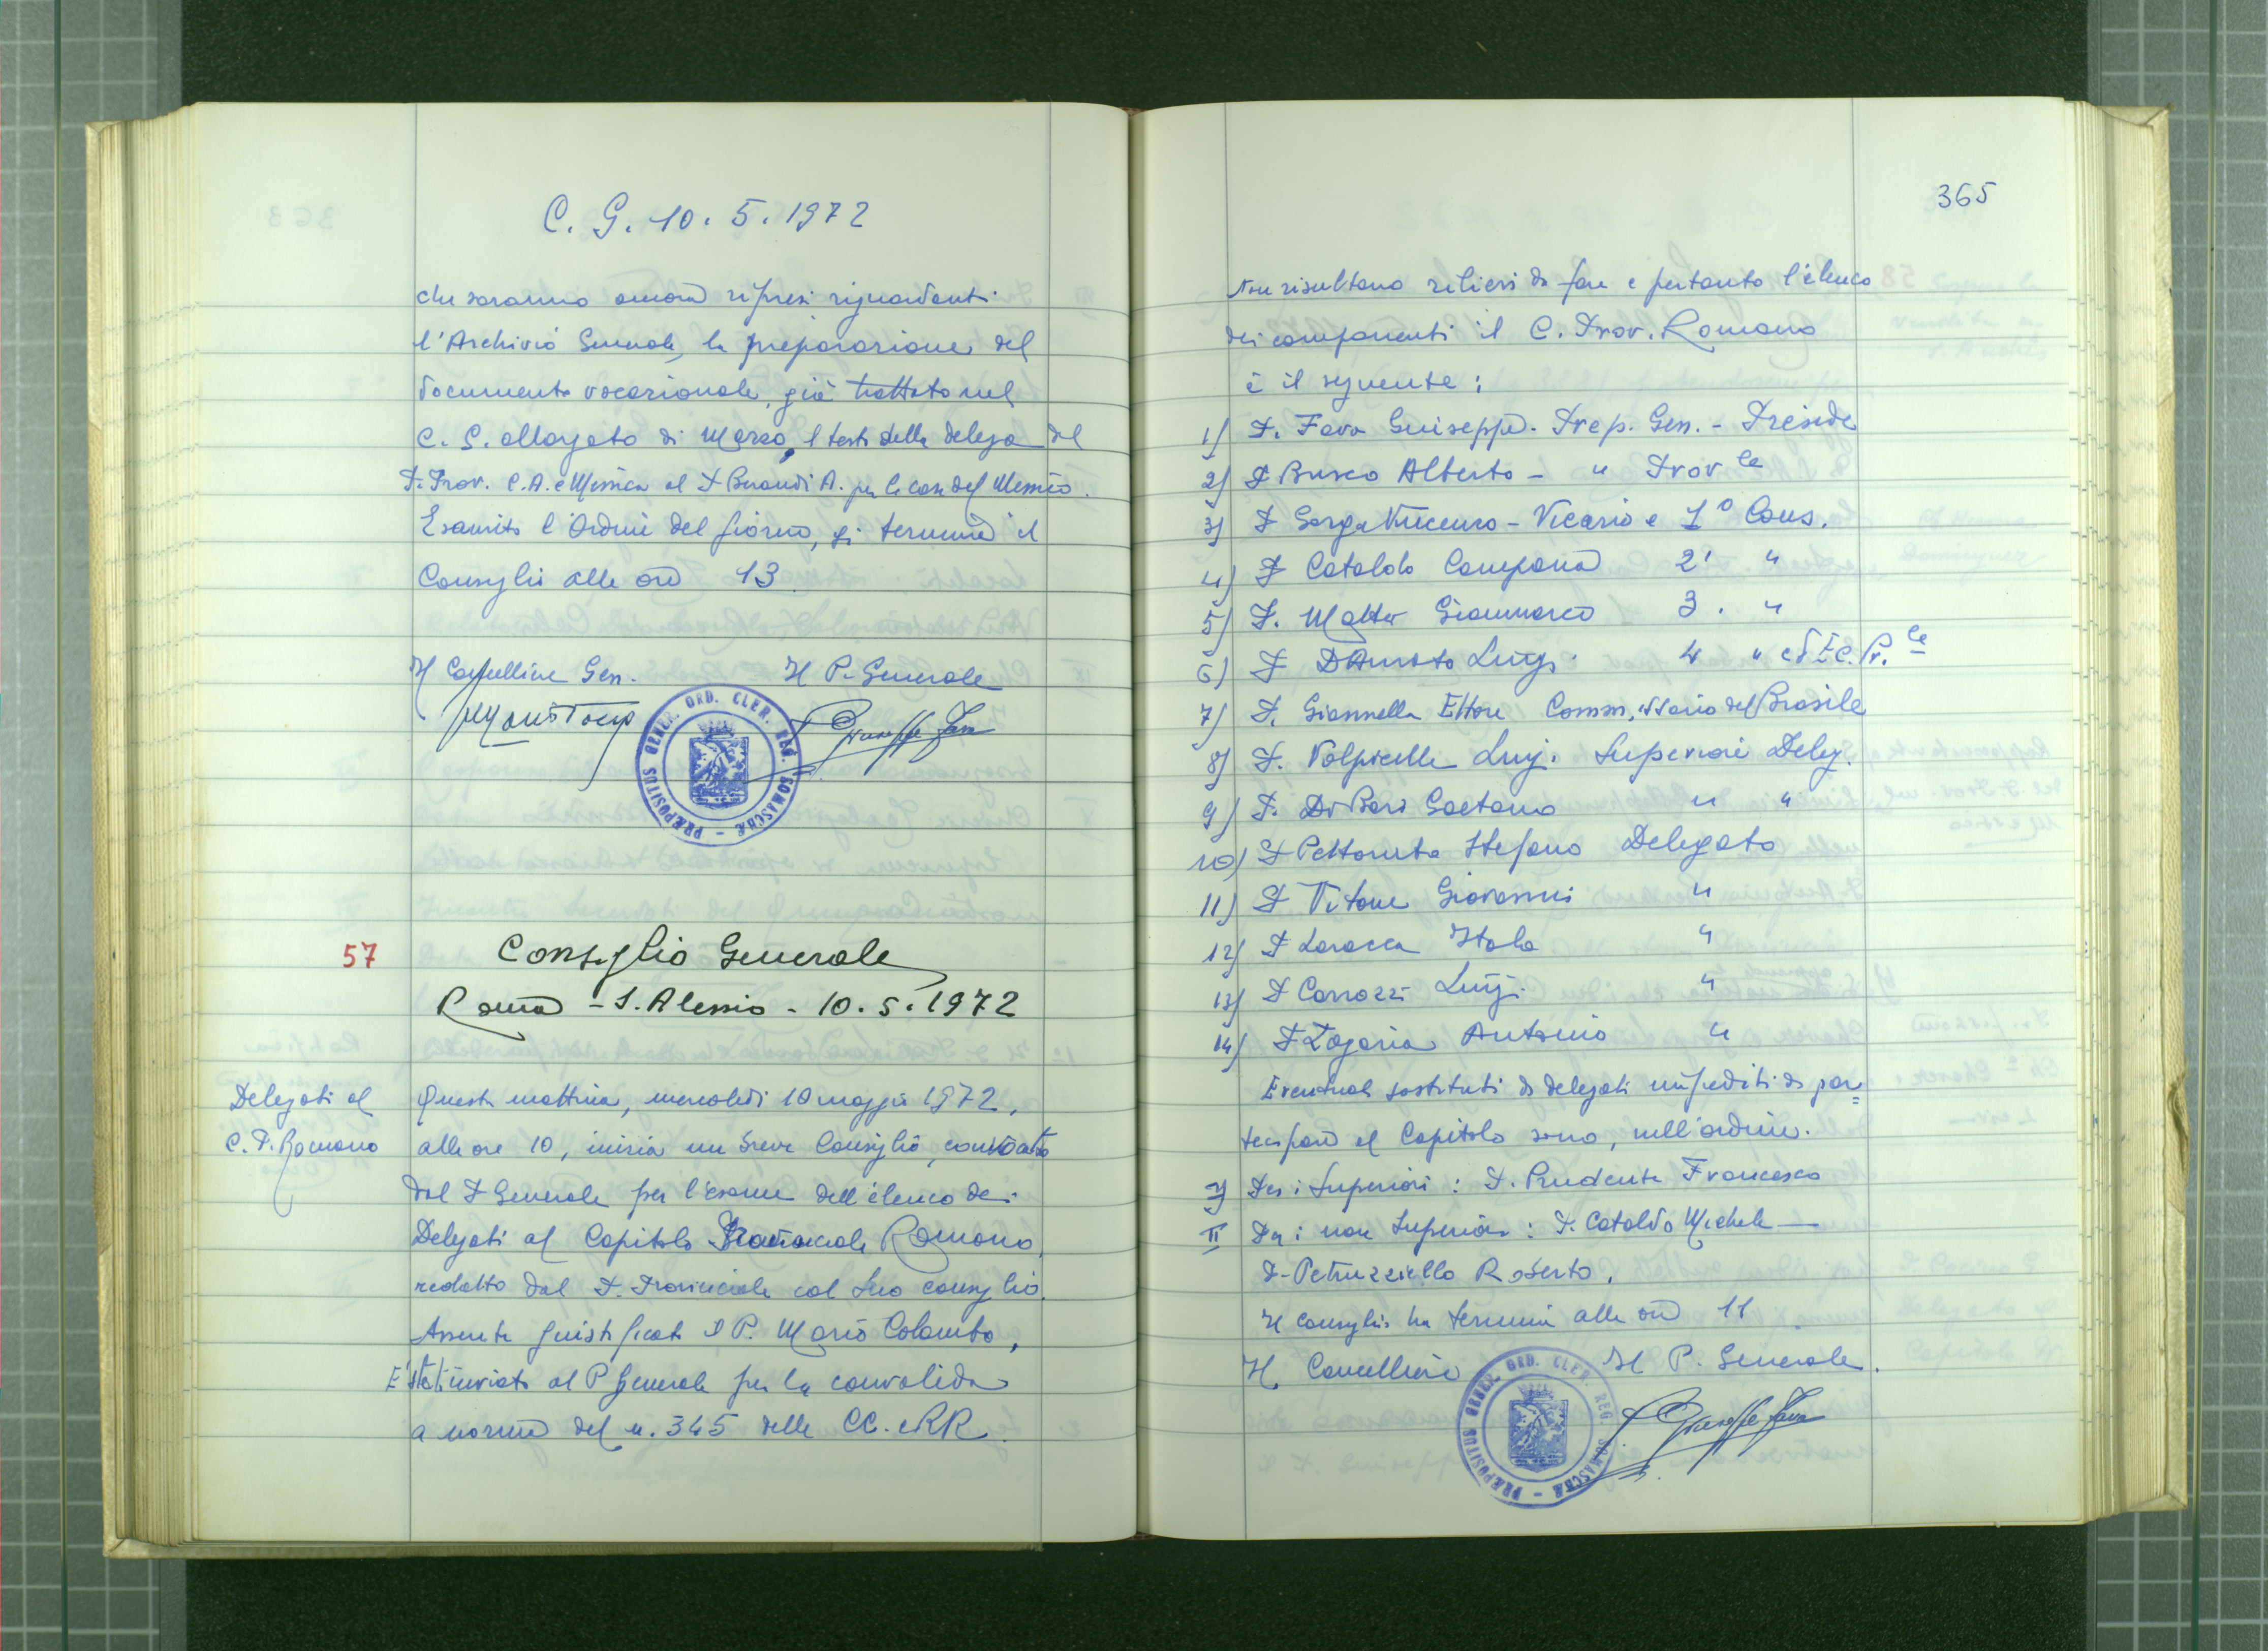 C. G. 10. 5. 1972
che saranno ancora ripresi riguardanti
l'Archivio Generale, la preparazione del
documento vocazionale, già trattato nel
C. G. allargato di Marzo, il testo della delega del
P. Prov. C.A. e Messico al P Berandi A. per le case del Messico.
Esaurito l'Ordine del giorno, si termina il
Consiglio alle ore 13
Il Cancelliere Gen. Il P. Generale
P Giuseppe Fava
PRÆPOSITUS GENER. ORD. CLER. REG. SOMASCHÆ
57 Consiglio Generale
Roma - S. Alessio - 10. 5. 1972
Delegati al
C. P. Romano
Questa mattina, mercoledì 10 maggio 1972,
alle ore 10, inizia un breve Consiglio, convocato
dal P Generale per l'esame dell'elenco dei
Delegati al Capitolo Provinciale Romano,
redatto dal P. Provinciale col suo consiglio.
Assente giustificato il P. Mario Colombo,
E' stato inviato al P Generale per la convalida
a norma del n. 345 delle CC. e RR.
365
Non risultano rilievi da fare e pertanto l'elenco
dei componenti il C. Prov. Romano
è il seguente:
1) P. Fava Giuseppe. Prep. Gen. - Preside
2) P Busco Alberto - " Prov le
3) P Gorga Vincenzo - Vicario e 1° Cons.
4) P Cataldo Campana 2' "
5) P. Mattei Gianmarco 3. "
6) P D'Amato Luigi 4 " ed Ec. Pr. le
7) P. Giannella Ettore Commissario del Brasile
8) P. Volpicelli Luigi Superiore Deleg.
9) P. Di Bari Gaetano " "
10) P Pettoruto Stefano Delegato
11) P Vitone Giovanni "
12) P Larocca Italo "
13) P Carrozzi Luigi "
14) P Zagaria Antonio "
Eventuali sostituti di delegati impediti di par=
tecipare al Capitolo sono, nell'ordine.
I) Per i Superiori: P. Prudente Francesco
II Per i non Superiori: P. Cataldo Michele —
P- Petruzziello Roberto.
Il consiglio ha termine alle ore 11.
Il Cancelliere Il P. Generale.
P Giuseppe Fava
PRÆPOSITUS GENER. ORD. CLER. REG. SOMASCHÆ